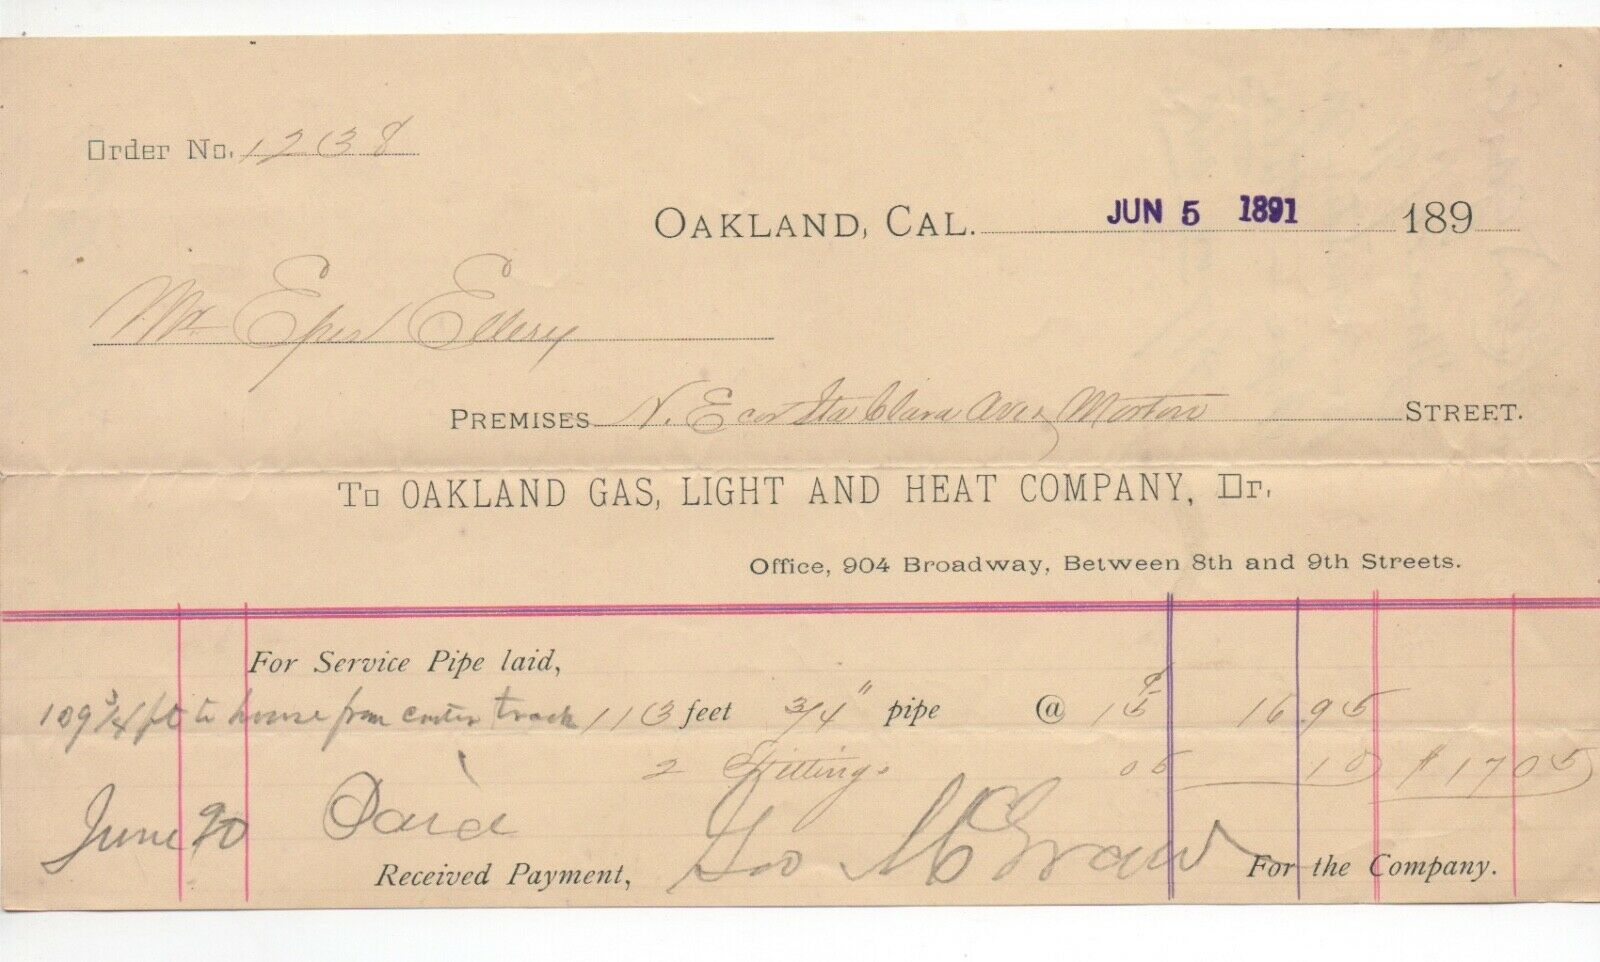 Order No. 1238
OAKLAND, CAL. JUN 5 1891 189
Mr Epes Ellery
PREMISES N. E cor Sta Clara Ave & Morton STREET.
To OAKLAND GAS, LIGHT AND HEAT COMPANY, Dr.
Office, 904 Broadway, Between 8th and 9th Streets.
For Service Pipe laid,
109 3/4 ft to house from center track 113 feet 3/4" pipe @ 15¢ 16.95
2 Fittings 05 10 $ 17 05
June 20 Paid
Received Payment, Geo McGraw For the Company.